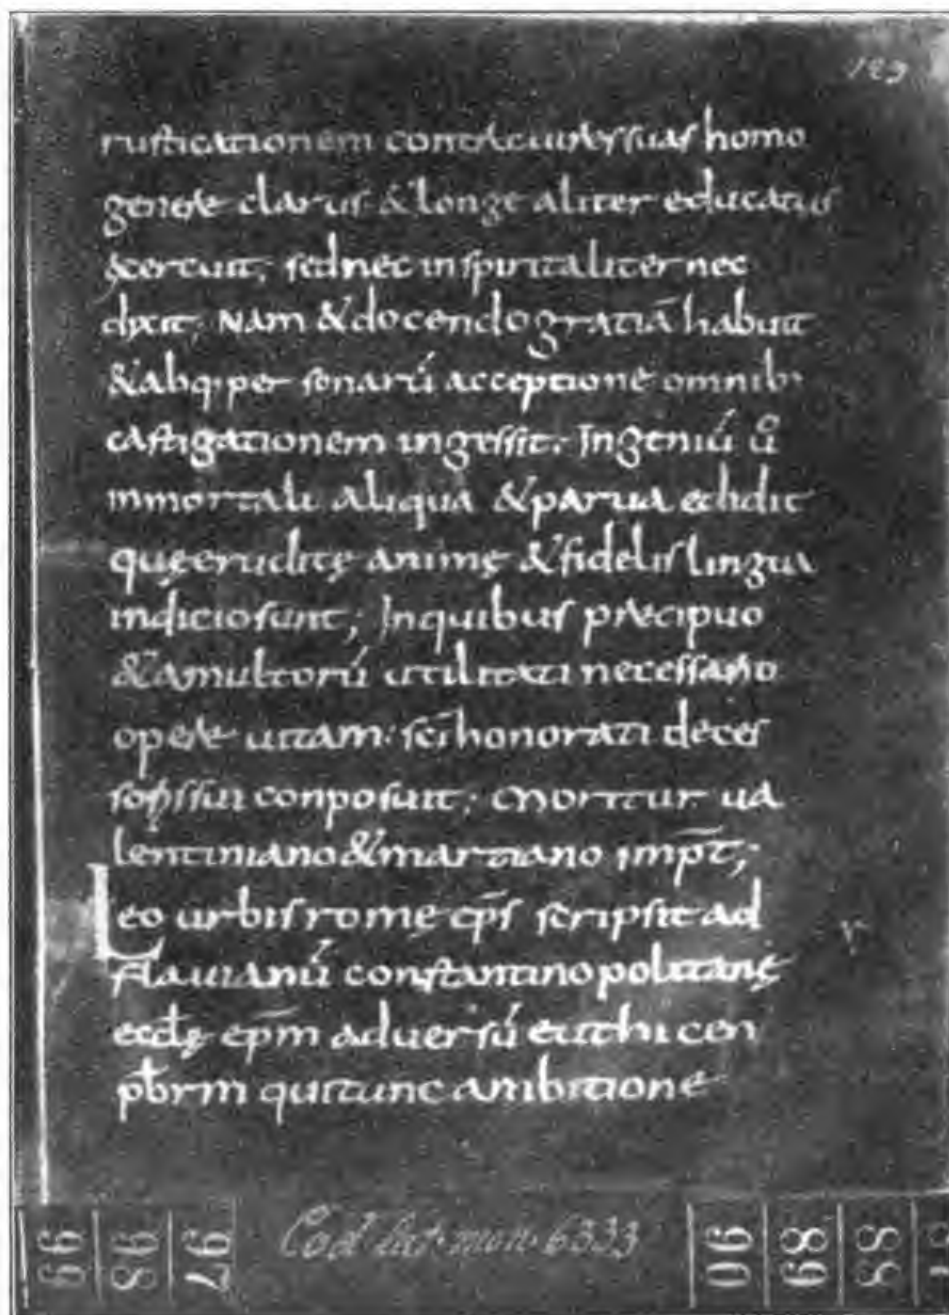 123
rusticationem contra uires suas homo
genere clarus & longe aliter educatus
exercuit; sed nec in spiritaliter nec
dixit; Nam & docendo gratiā habuit
& absq; per sonarū acceptione omnib;
castigationem ingessit. Ingeniū ū
inmortali aliqua & parua edidit
quę erudite animę & fidelis linguę
indicio sunt; In quibus precipuo
& a multorū utilitati necessario
opere uitam sc̄i honorati deces
soris sui conposuit; Moritur ua
lentiniano & martiano imp̄t;
Leo urbis romę ep̄s scripsit ad
flauianū constantinopolitanę
eccl̄ę ep̄m aduersū euthicen
pb̄rm qui tunc ambitione
Cod. lat. mon. 6333
99
98
97
90
89
88